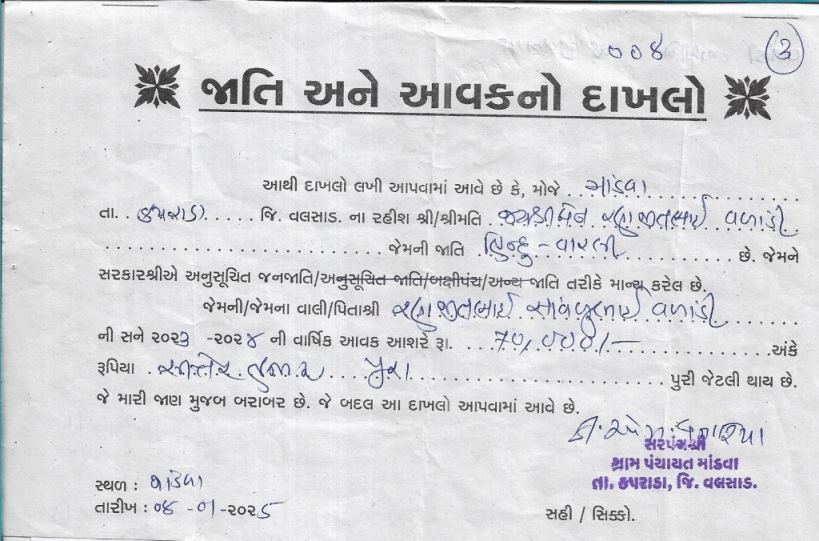 ૦૦૪ ૩
જાતિ અને આવકનો દાખલો
આથી દાખલો લખી આપવામાં આવે છે કે, મોજે . . માંડવા . . . .
તા. . કપરાડા . . . . . જિ. વલસાડ. ના રહીશ શ્રી/શ્રીમતિ . . રણજીતભાઈ વળાંડી
. . . . જેમની જાતિ . હિન્દુ - વારલી . . . . છે. જેમને
સરકારશ્રીએ અનુસૂચિત જનજાતિ/અનુસૂચિત જાતિ/બક્ષીપંચ/અન્ય જાતિ તરીકે માન્ય કરેલ છે.
જેમની/જેમના વાલી/પિતાશ્રી . રણજીતભાઈ વળાંડી . . .
ની સને ૨૦૨૩ -૨૦૨૪ ની વાર્ષિક આવક આશરે રૂા. . . . ૭૦,૦૦૦/- . . . . અંકે
રૂપિયા . સીત્તેર હજાર . . . પુરા . . . . પુરી જેટલી થાય છે.
જે મારી જાણ મુજબ બરાબર છે. જે બદલ આ દાખલો આપવામાં આવે છે.
સરપંચશ્રી
ગ્રામ પંચાયત માંડવા
તા. કપરાડા, જિ. વલસાડ.
સ્થળ : માંડવા
તારીખ : ૦૪ -૦૧ -૨૦૨૫
સહી / સિક્કો.